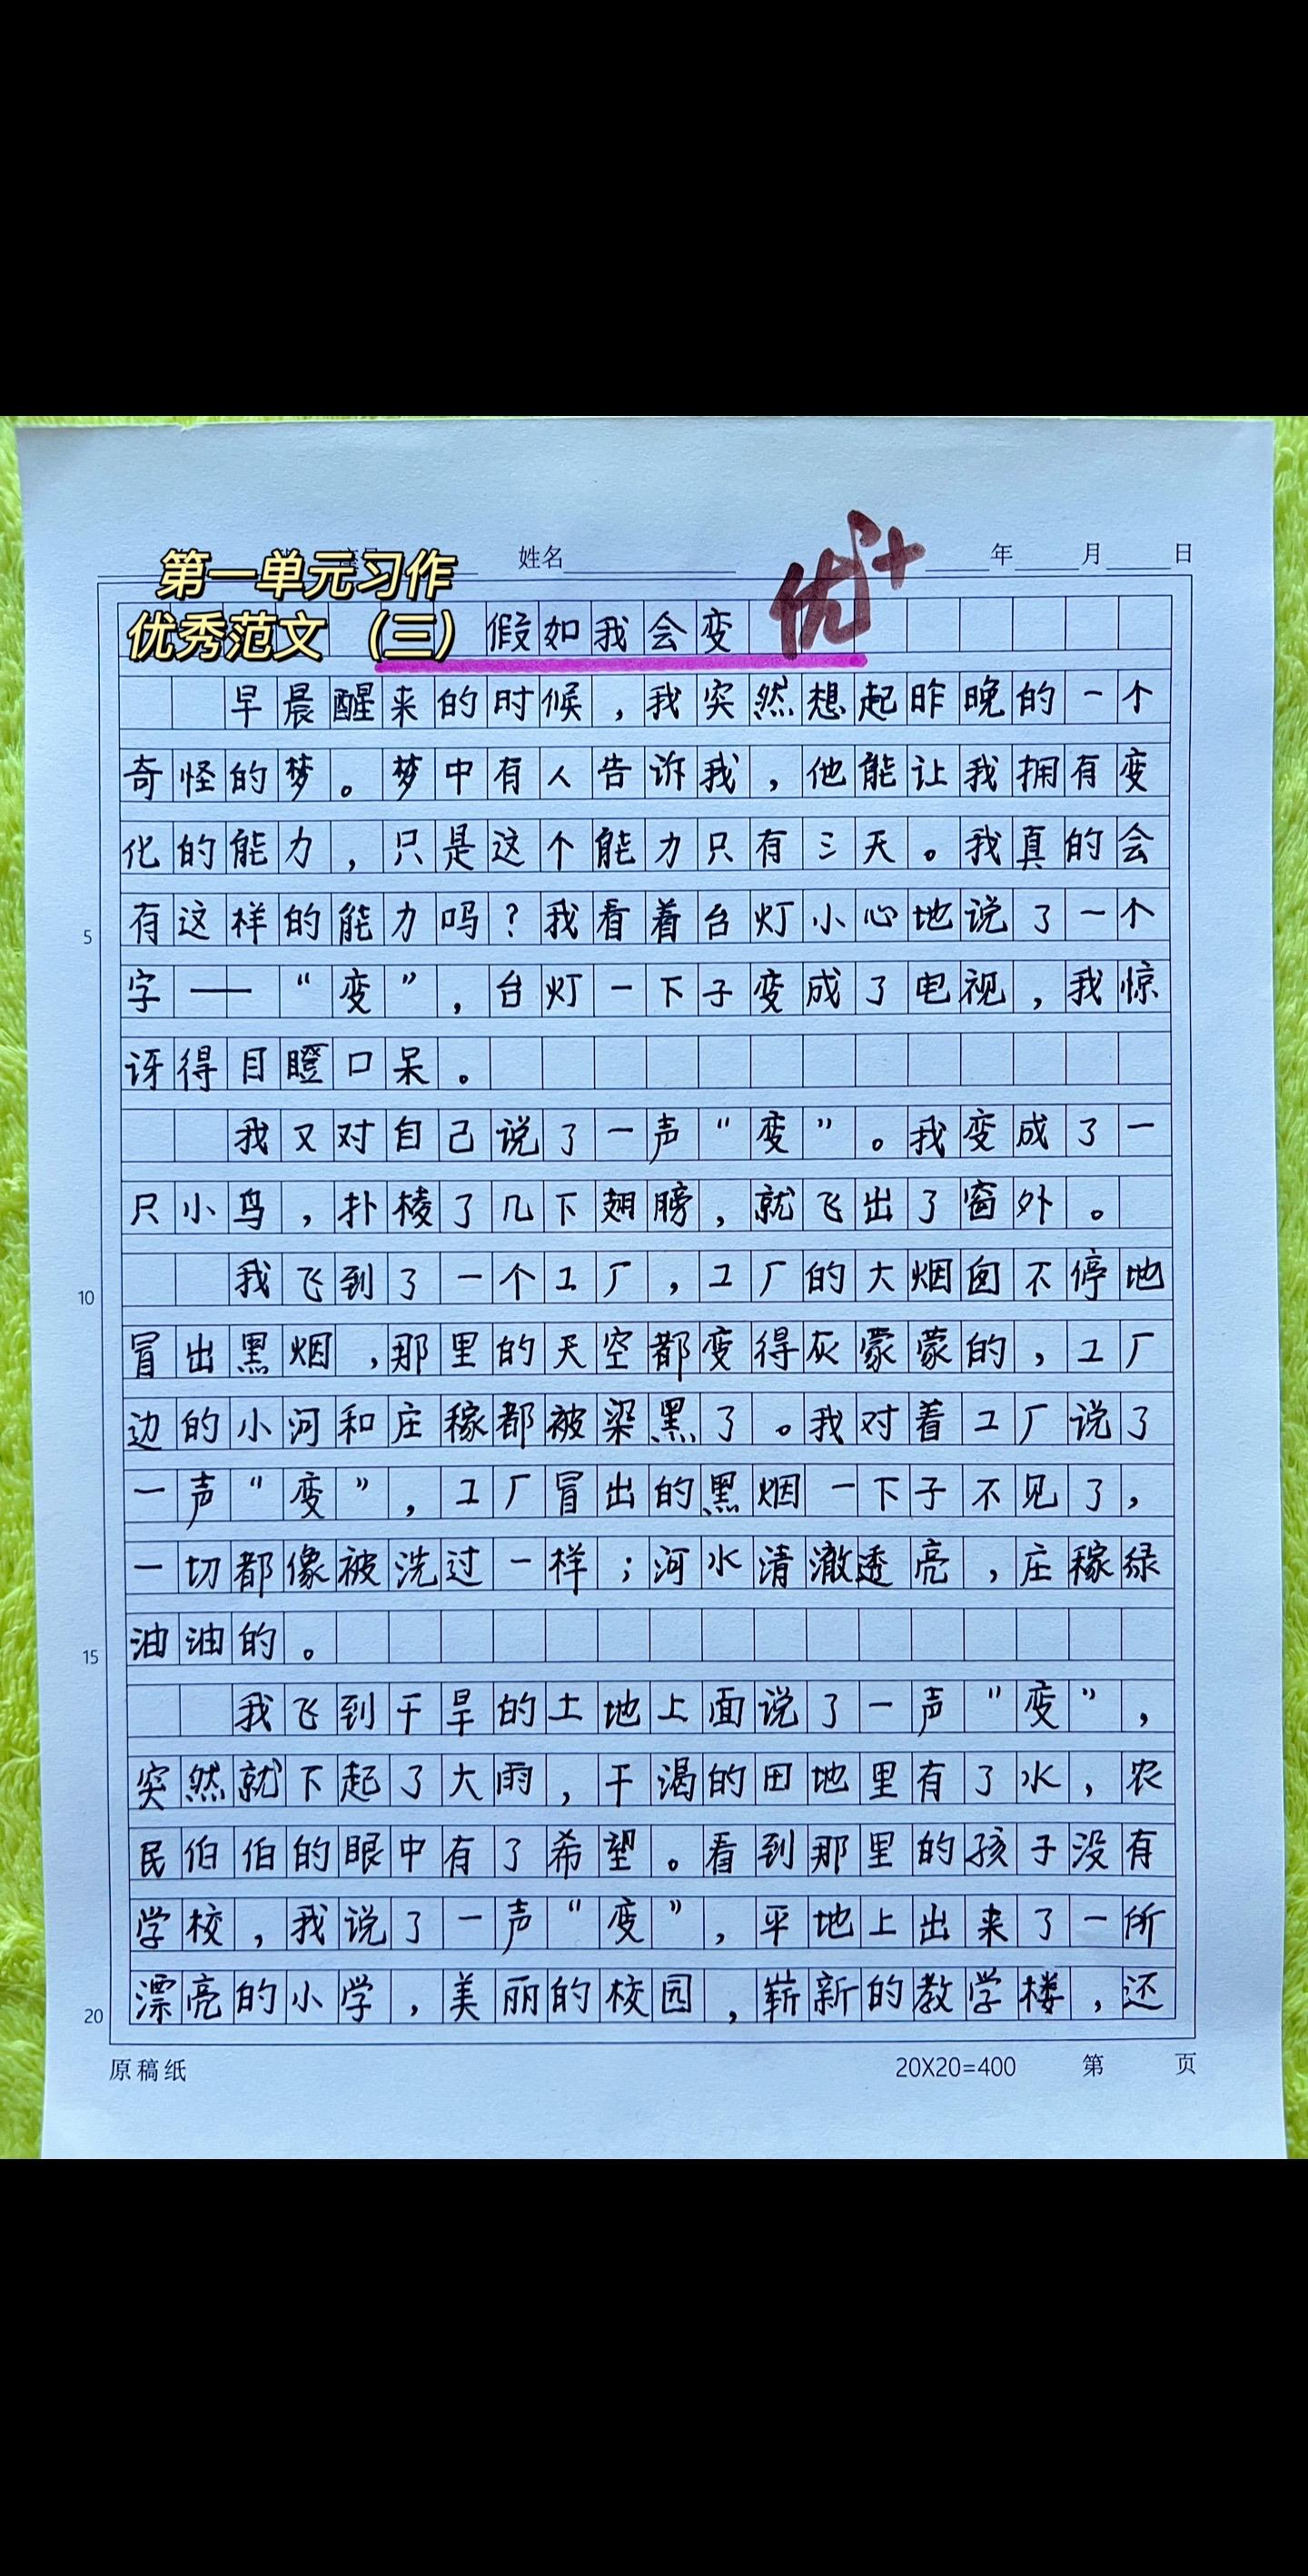 第一单元习作
优秀范文（三）
姓名 年 月 日
优+
假如我会变
早晨醒来的时候，我突然想起昨晚的一个
奇怪的梦。梦中有人告诉我，他能让我拥有变
化的能力，只是这个能力只有三天。我真的会
有这样的能力吗？我看着台灯小心地说了一个
5
字——“变”，台灯一下子变成了电视，我惊
讶得目瞪口呆。
我又对自己说了一声“变”。我变成了一
只小鸟，扑棱了几下翅膀，就飞出了窗外。
我飞到了一个工厂，工厂的大烟囱不停地
10
冒出黑烟，那里的天空都变得灰蒙蒙的，工厂
边的小河和庄稼都被染黑了。我对着工厂说了
一声“变”，工厂冒出的黑烟一下子不见了，
一切都像被洗过一样；河水清澈透亮，庄稼绿
油油的。
15
我飞到干旱的土地上面说了一声“变”，
突然就下起了大雨，干渴的田地里有了水，农
民伯伯的眼中有了希望。看到那里的孩子没有
学校，我说了一声“变”，平地上出来了一所
漂亮的小学，美丽的校园，崭新的教学楼，还
20
原稿纸 20X20=400 第 页